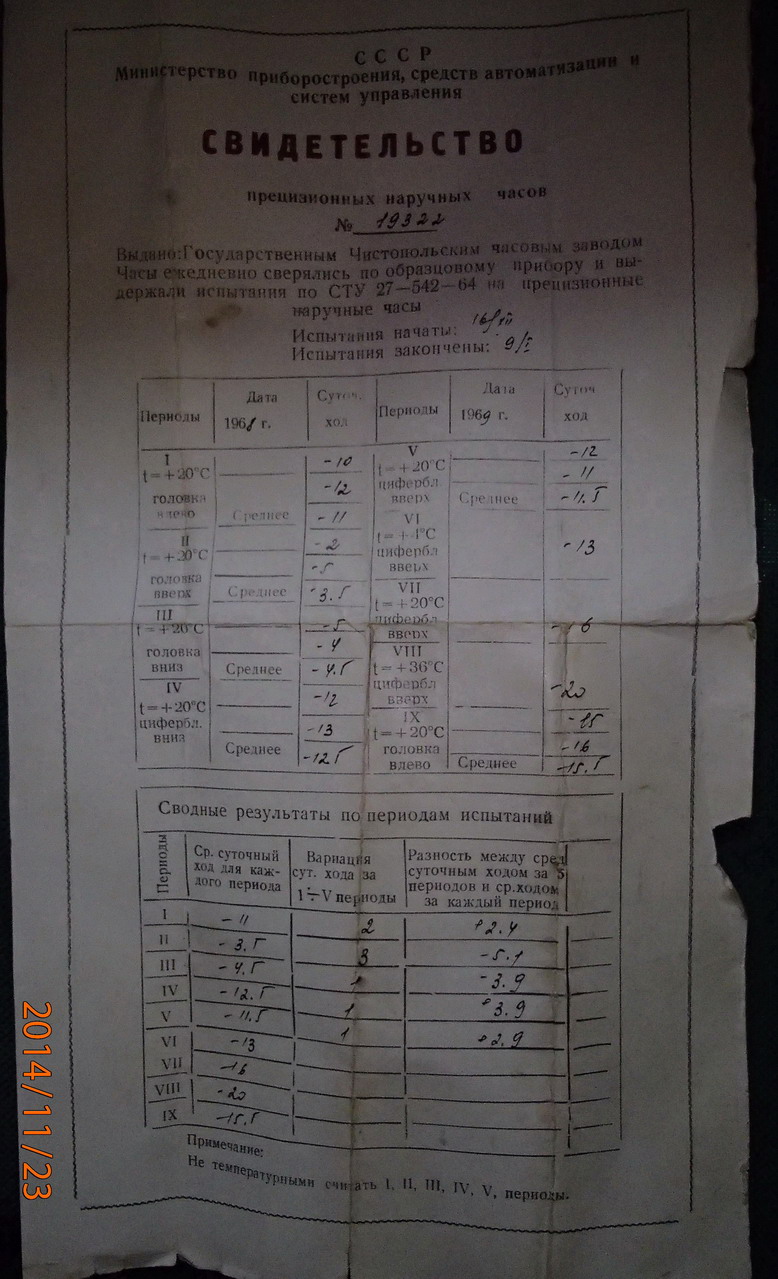 СССР
Министерство приборостроения, средств автоматизации и
систем управления
СВИДЕТЕЛЬСТВО
прецизионных наручных часов
№ 19322
Выдано: Государственным Чистопольским часовым заводом
Часы ежедневно сверялись по образцовому прибору и вы-
держали испытания по СТУ 27—542—64 на прецизионные
наручные часы
Испытания начаты: 16/XII
Испытания закончены: 9/I
Периоды Дата 1968 г. Суточ. ход Периоды Дата 1969 г. Суточ ход
I -10 V -12
t=+20°С -12 t=+20°С -11
головка цифербл.
влево Среднее -11 вверх Среднее -11.5
II -2 VI
t=+20°С -5 t=+4°С -13
головка цифербл
вверх Среднее -3.5 вверх
III -5 VII
t=+20°С -4 t=+20°С -16
головка цифербл
вниз Среднее -4.5 вверх
IV -12 VIII
t=+20°С -13 t=+36°С -20
цифербл. цифербл
вниз Среднее -12.5 вверх
IX -15
t=+20°С -16
головка
влево Среднее -15.5
Сводные результаты по периодам испытаний
Периоды
Ср. суточный
ход для каж-
дого периода
Вариация
сут. хода за
1÷V периоды
Разность между сред
суточным ходом за 5
периодов и ср.ходом
за каждый период
I -11 2 +2.4
II -3.5 3 -5.1
III -4.5 1 -3.9
IV -12.5 1 +3.9
V -11.5 1 +2.9
VI -13
VII -16
VIII -20
IX -15.5
Примечание:
Не температурными считать I, II, III, IV, V, периоды.
2014/11/23